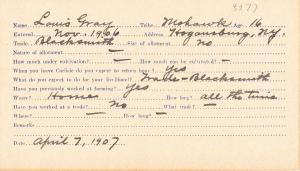 8377
Name, Louis Gray Tribe, Mohawk Age, 16
Entered, Nov. 1906 Address, Hogansburg, N.Y.
Trade, Blacksmith Size of allotment, no
Nature of allotment,
How much under cultivation? How much can be cultivated?
When you leave Carlisle do you expect to return home? yes
What do you expect to do for your livelihood? Trade - Blacksmith
Have you previously worked at farming? Yes
Where? Home How long? all the time
Have you worked at a trade? no What trade?
Where? How long?
Remarks:
Date, April 7, 1907